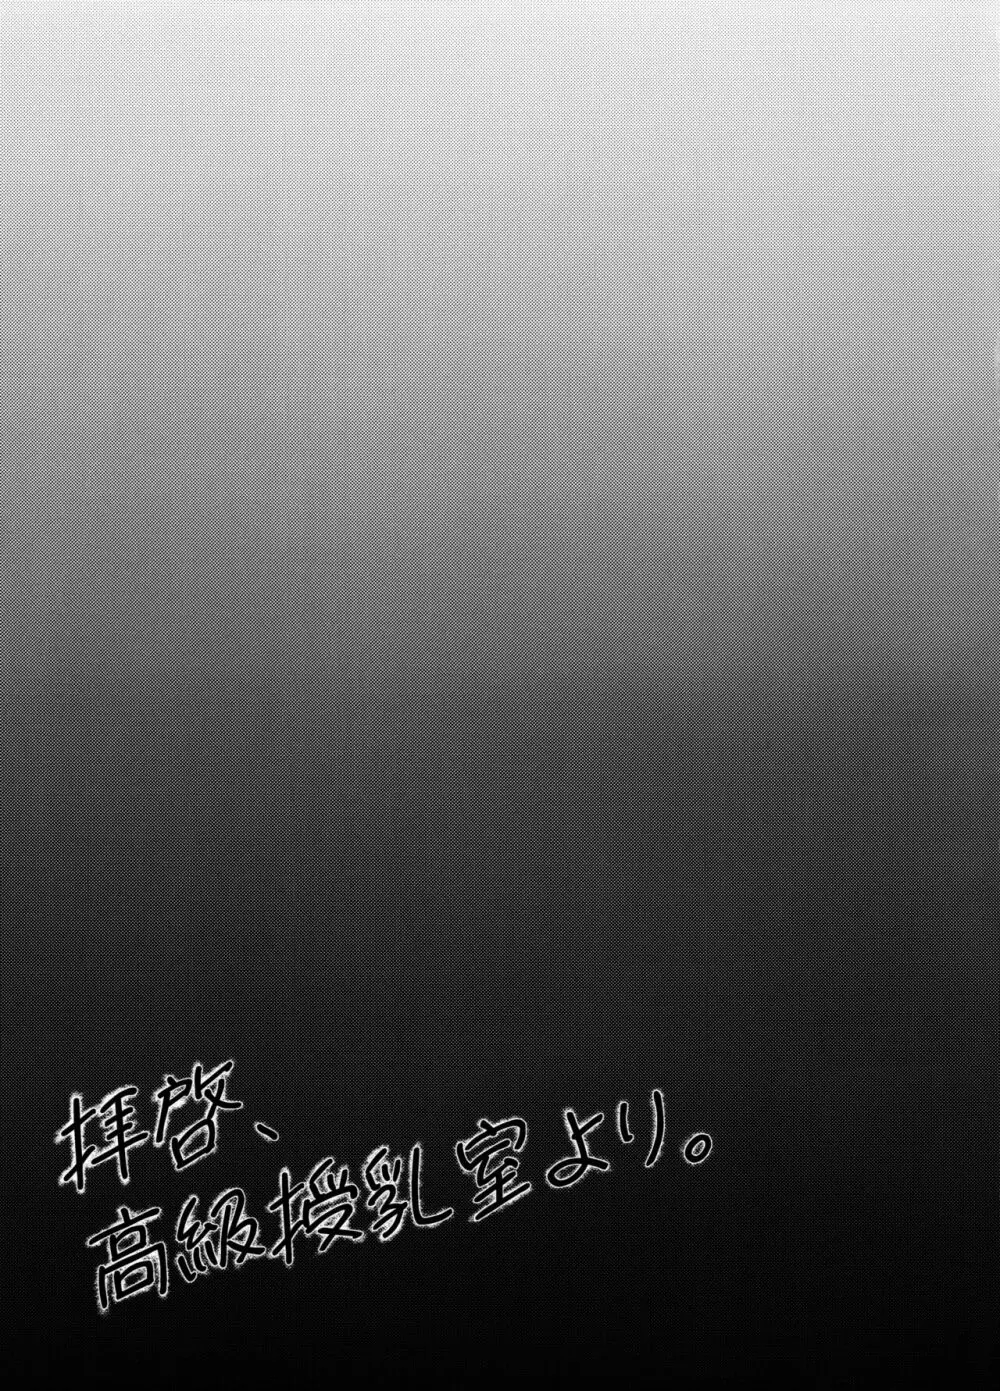 拝啓、
高級授乳室より。